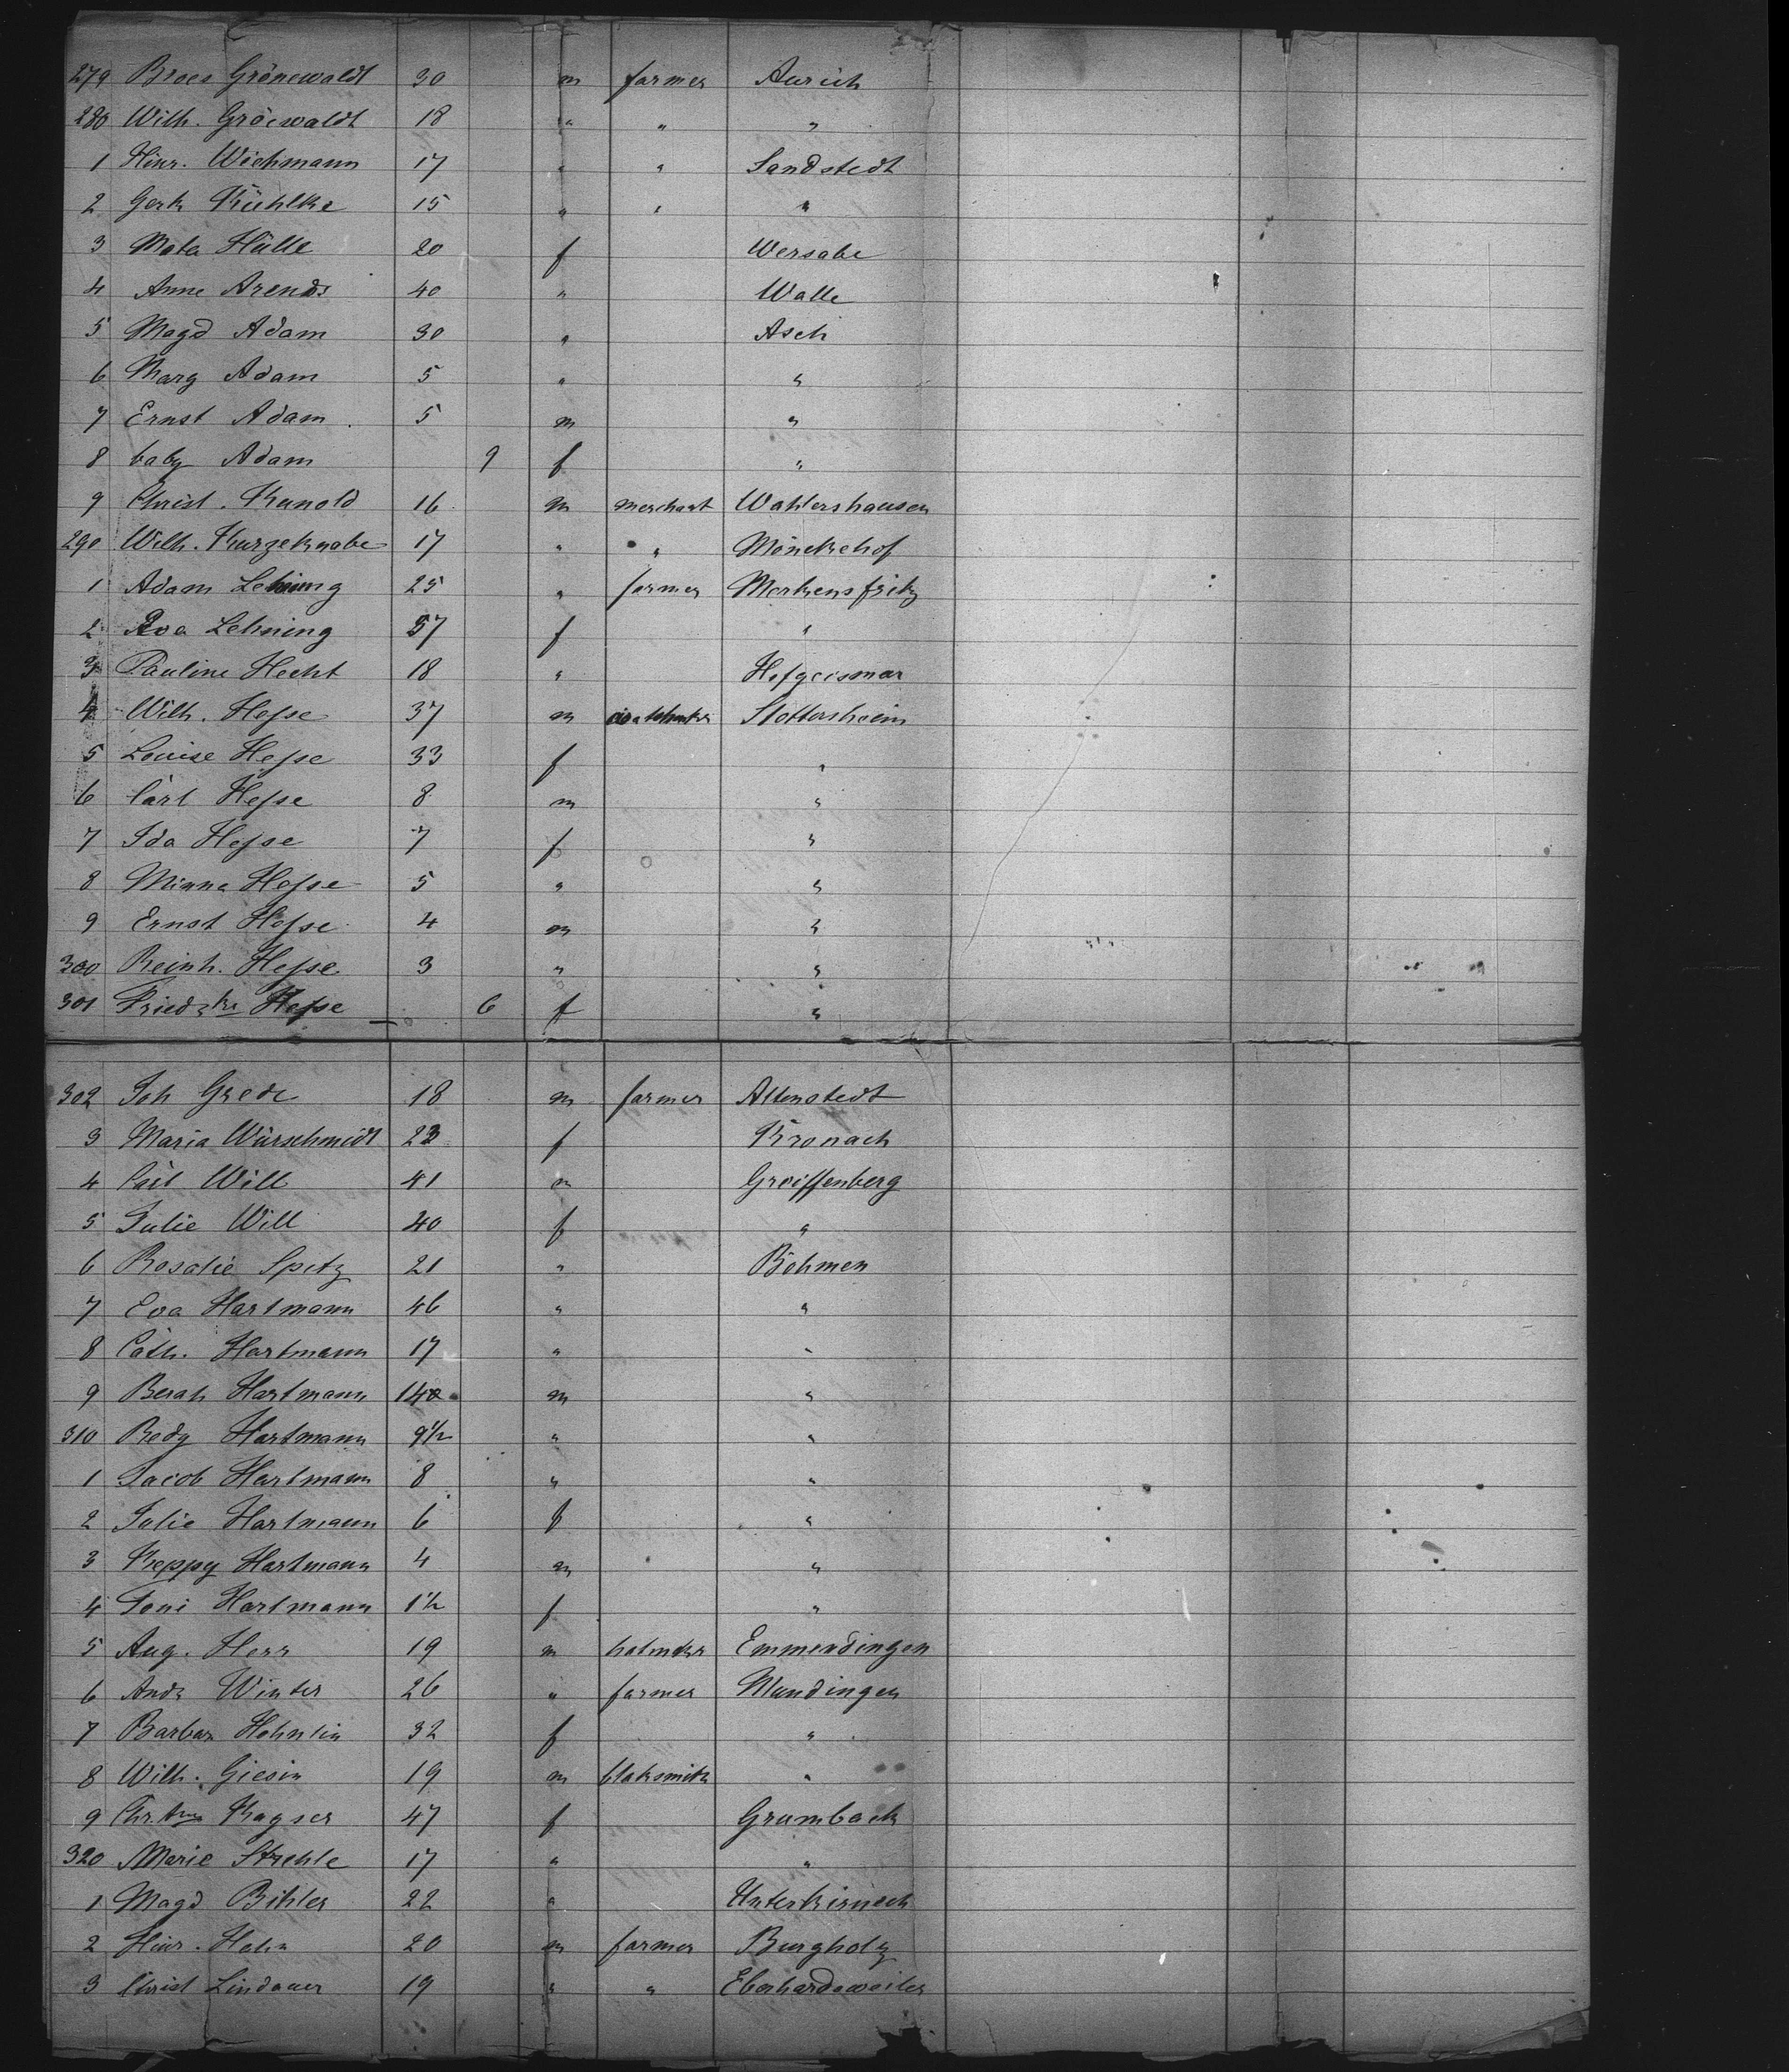 279 Broes Grönewaldt 30 m farmer Aurich
280 Wilh. Gröewaldt 18 " " "
1 Hinr. Wichmann 17 " " Sandstedt
2 Gerh Kühlke 15 " " "
3 Meta Hülle 20 f Wersabe
4 Anne Arends 40 " Walle
5 Magd Adam 30 " Asch
6 Marg Adam 5 " "
7 Ernst Adam 5 m "
8 baby Adam 9 f "
9 Christ. Kunold 16 m merchant Wahlershausen
290 Wilh. Kurzeknabe 17 " " Mönckehof
1 Adam Lehning 25 " farmer Merkensfritz
2 Eva Lehning 57 f "
3 Pauline Hecht 18 " Hofgeismar
4 Wilh. Hesse 37 m Stotternheim
5 Louise Hesse 33 f "
6 Carl Hesse 8 m "
7 Ida Hesse 7 f "
8 Minna Hesse 5 " "
9 Ernst Hesse 4 m "
300 Reinh. Hesse 3 " "
301 Friedrke Hesse 6 f "
302 Joh Grede 18 m farmer Altenstedt
3 Maria Würschmidt 23 f Kronach
4 Carl Will 41 m Greiffenberg
5 Julie Will 40 f "
6 Rosalie Spitz 21 " Böhmen
7 Eva Hartmann 46 " "
8 Cath. Hartmann 17 " "
9 Berah Hartmann 14 m "
310 Redy Hartmann 9½ " "
1 Jacob Hartmann 8 " "
2 Julie Hartmann 6 f "
3 Peppy Hartmann 4 m "
4 Toni Hartmann 1½ f "
5 Aug. Herr 19 m hatmker Emmendingen
6 Andr Winter 26 " farmer Mundingen
7 Barbara Hehnlin 32 f "
8 Wilh. Giesin 19 m blaksmith "
9 Chr.tne Kayser 47 f Grumbach
320 Marie Strehle 17 " "
1 Magd Bihler 22 " Unterkirnech
2 Hinr. Hahn 20 m farmer Burgholz
3 Christ Lindauer 19 " " Eberhardsweiler